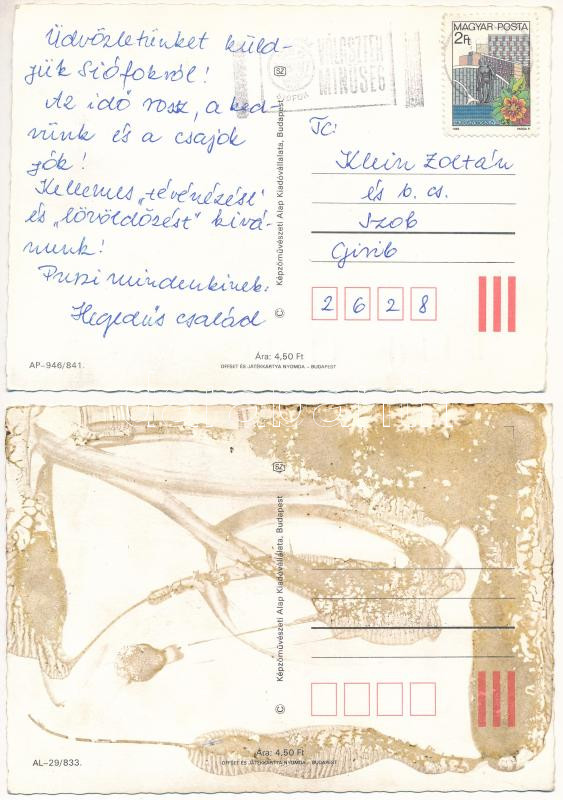 Üdvözletünket küld-
jük Siófokról!
Az idő rossz, a ked-
vünk és a csajok
jók!
Kellemes „tévénézést"
és „lövöldözést" kívá-
nunk!
Puszi mindenkinek:
Hegedűs család
AP-946/841.
SZ
© Képzőművészeti Alap Kiadóvállalata, Budapest
MINŐSÉG
MAGYAR POSTA
2Ft
Klein Zoltán
és b. cs.
Szob
2628
Ára: 4,50 Ft
OFFSET ÉS JÁTÉKKÁRTYA NYOMDA – BUDAPEST
SZ
© Képzőművészeti Alap Kiadóvállalata, Budapest
AL-29/833.
Ára: 4,50 Ft
OFFSET ÉS JÁTÉKKÁRTYA NYOMDA – BUDAPEST